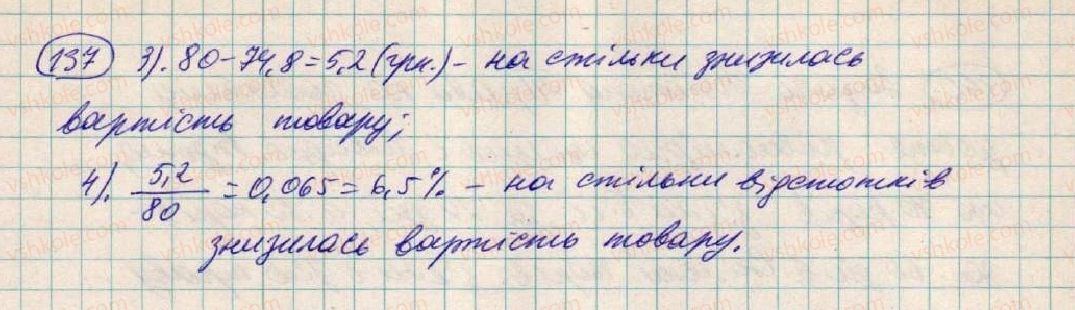 137 3). 80-74,8=5,2 (грн.) - на стільки знизилась
вартість товару;
4). 5,2/80 = 0,065 = 6,5% - на стільки відстотків
знизилась вартість товару.